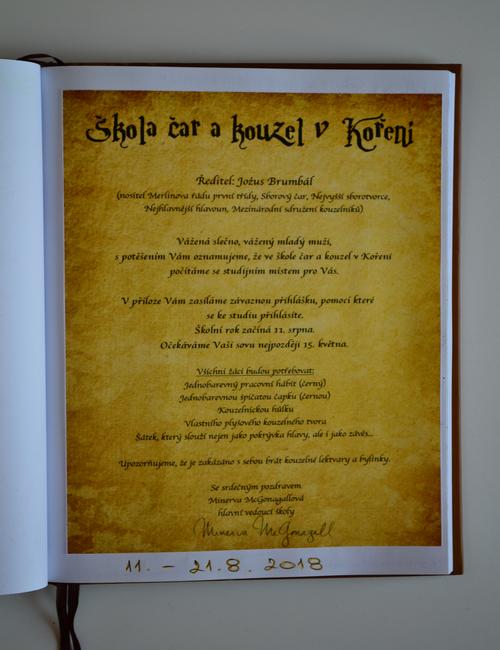 Škola čar a kouzel v Kořeni
Ředitel: Jožus Brumbál
(nositel Merlinova řádu první třídy, Sborový čar, Nejvyšší sborotvorce,
Nejhlavnější hlavoun, Mezinárodní sdružení kouzelníků)
Vážená slečno, vážený mladý muži,
s potěšením Vám oznamujeme, že ve škole čar a kouzel v Kořeni
počítáme se studijním místem pro Vás.
V příloze Vám zasíláme závaznou přihlášku, pomocí které
se ke studiu přihlásíte.
Školní rok začíná 11. srpna.
Očekáváme Vaši sovu nejpozději 15. května.
Všichni žáci budou potřebovat:
Jednobarevný pracovní hábit (černý)
Jednobarevnou špičatou čapku (černou)
Kouzelnickou hůlku
Vlastního plyšového kouzelného tvora
Šátek, který slouží nejen jako pokrývka hlavy, ale i jako závěs...
Upozorňujeme, že je zakázáno s sebou brát kouzelné lektvary a bylinky.
Se srdečným pozdravem
Minerva McGonagallová
hlavní vedoucí školy
Minerva McGonagall
11. - 21.8.2018